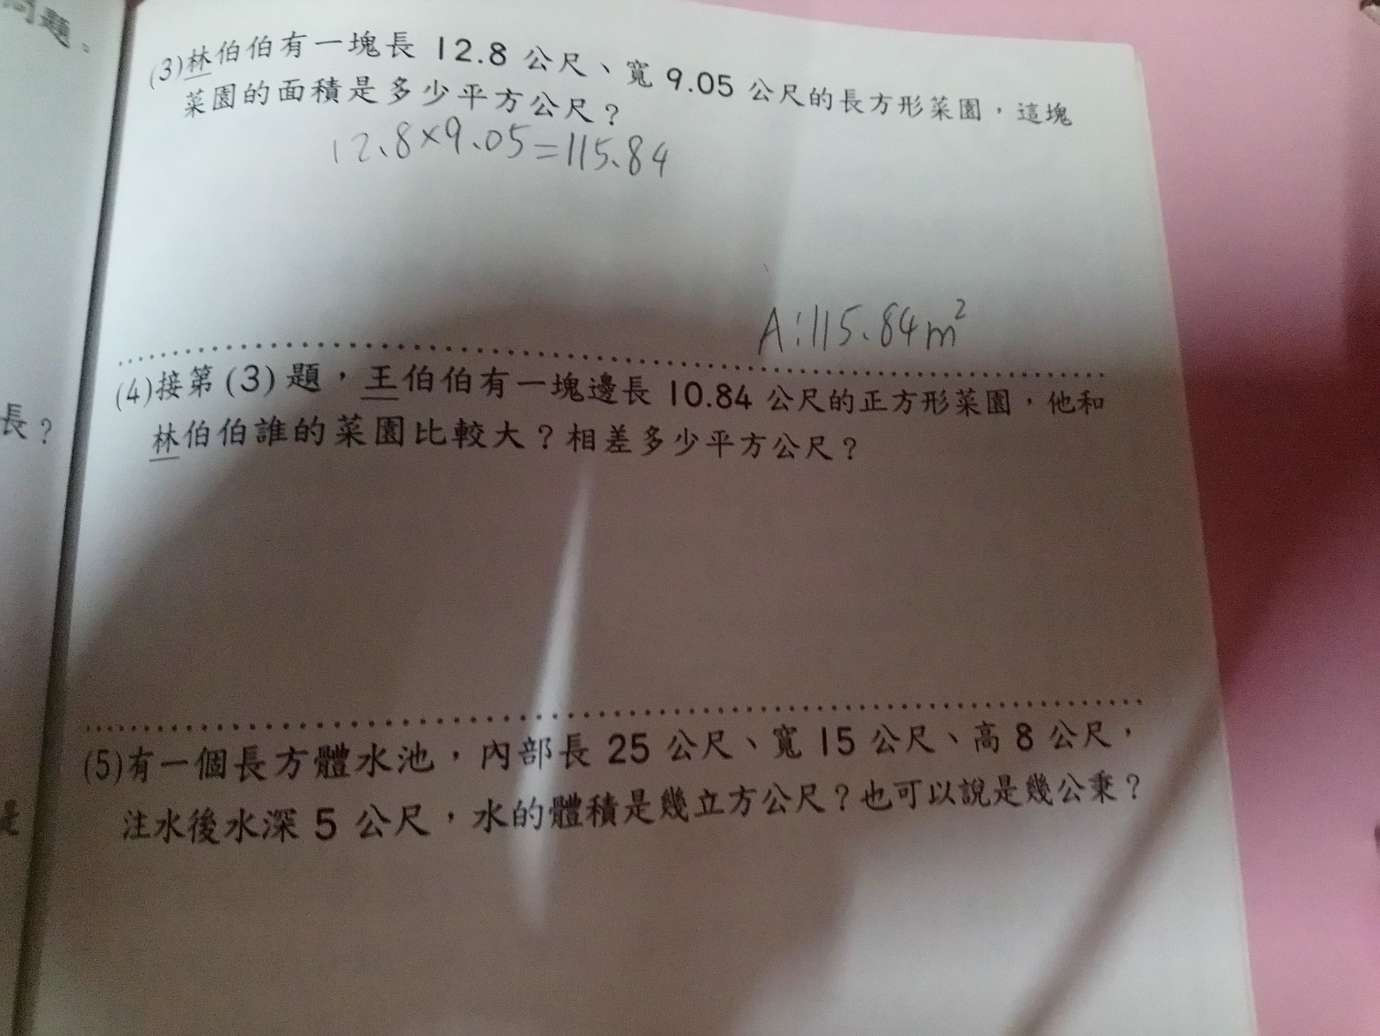 問題。
(3)林伯伯有一塊長 12.8 公尺、寬 9.05 公尺的長方形菜園，這塊
菜園的面積是多少平方公尺？
12.8×9.05=115.84
A:115.84m²
(4)接第(3)題，王伯伯有一塊邊長 10.84 公尺的正方形菜園，他和
林伯伯誰的菜園比較大？相差多少平方公尺？
長？
(5)有一個長方體水池，內部長 25 公尺、寬 15 公尺、高 8 公尺，
注水後水深 5 公尺，水的體積是幾立方公尺？也可以說是幾公秉？
是